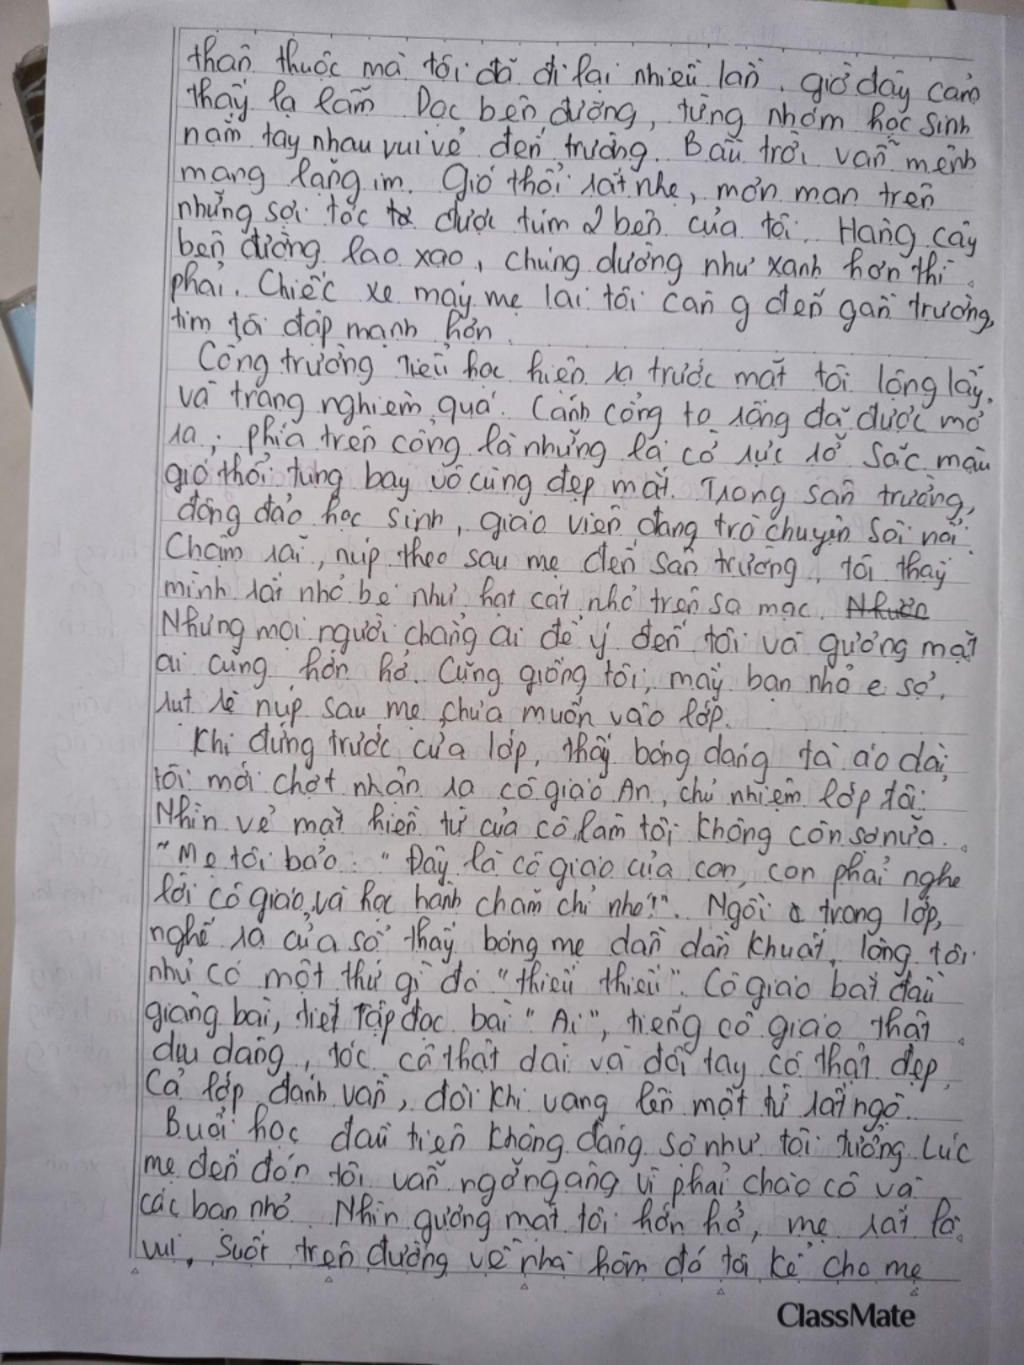 thân thuộc mà tôi đã đi lại nhiều lần, giờ đây cảm
thấy lạ lắm. Dọc bên đường, từng nhóm học sinh
nắm tay nhau vui vẻ đến trường. Bầu trời vẫn mênh
mang lặng im. Gió thổi rất nhẹ, mơn man trên
những sợi tóc được túm 2 bên của tôi. Hàng cây
bên đường lao xao, chúng dường như xanh hơn thì
phải. Chiếc xe máy mẹ lai tôi càng đến gần trường,
tim tôi đập mạnh hơn.
Cổng trường Tiểu học hiện ra trước mắt tôi lộng lẫy,
và trang nghiêm quá. Cánh cổng to rộng đã được mở
ra, phía trên cổng là những lá cờ rực rỡ sắc màu
gió thổi tung bay vô cùng đẹp mắt. Trong sân trường,
đông đảo học sinh, giáo viên đang trò chuyện sôi nổi.
Chậm rãi, núp theo sau mẹ đến sân trường, tôi thấy
mình rất nhỏ bé như hạt cát nhỏ trên sa mạc.
Nhưng mọi người chẳng ai để ý đến tôi và gương mặt
ai cũng hớn hở. Cũng giống tôi, mấy bạn nhỏ e sợ,
rụt rè núp sau mẹ chưa muốn vào lớp.
Khi đứng trước cửa lớp, thấy bóng dáng tà áo dài,
tôi mới chợt nhận ra cô giáo An, chủ nhiệm lớp tôi.
Nhìn vẻ mặt hiền từ của cô làm tôi không còn sợ nữa.
"Mẹ tôi bảo: "Đây là cô giáo của con, con phải nghe
lời cô giáo, và học hành chăm chỉ nhé!". Ngồi ở trong lớp,
nghé ra cửa sổ thấy bóng mẹ dần dần khuất, lòng tôi
như có một thứ gì đó "thiếu thiếu". Cô giáo bắt đầu
giảng bài, tiết Tập đọc bài "Ai", tiếng cô giáo thật
dịu dàng, tóc cô thật dài và đôi tay cô thật đẹp.
Cả lớp đánh vần, đôi khi vang lên một từ rất ngộ.
Buổi học đầu tiên không đáng sợ như tôi tưởng. Lúc
mẹ đến đón tôi vẫn ngỡ ngàng vì phải chào cô và
các bạn nhỏ. Nhìn gương mặt tôi hớn hở, mẹ rất là
vui. Suốt trên đường về nhà hôm đó tôi kể cho mẹ
ClassMate